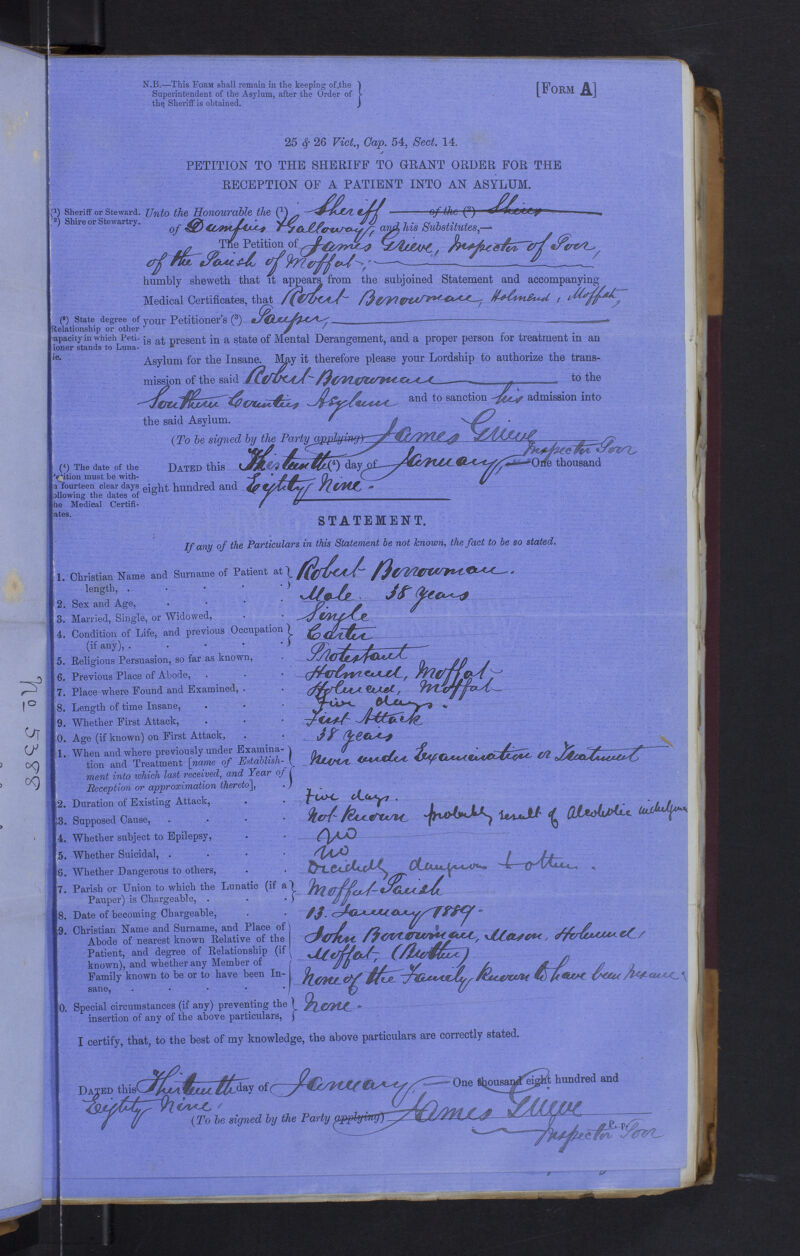 N.B.—This Form shall remain in the keeping of the
Superintendent of the Asylum, after the Order of
the Sheriff is obtained.
[Form A]
25 & 26 Vict., Cap. 54, Sect. 14.
PETITION TO THE SHERIFF TO GRANT ORDER FOR THE
RECEPTION OF A PATIENT INTO AN ASYLUM.
(1) Sheriff or Steward.
(2) Shire or Stewartry.
Unto the Honourable the (1) Sheriff of the (2) Shires
of Dumfries & Galloway, and his Substitutes,—
The Petition of James Grieve, Inspector of Poor,
of the Parish of Moffat,
humbly sheweth that it appears from the subjoined Statement and accompanying
Medical Certificates, that Robert Borrowman, Holmend, Moffat,
(3) State degree of
Relationship or other
capacity in which Peti-
ioner stands to Luna-
ic.
your Petitioner's (3) Pauper,
is at present in a state of Mental Derangement, and a proper person for treatment in an
Asylum for the Insane. May it therefore please your Lordship to authorize the trans-
mission of the said Robert Borrowman to the
Southern Counties Asylum and to sanction his admission into
the said Asylum.
(To be signed by the Party applying) James Grieve
Inspector Poor
(4) The date of the
etition must be with-
n fourteen clear days
ollowing the dates of
he Medical Certifi-
ates.
Dated this Thirteenth (4) day of January, One thousand
eight hundred and Eighty Nine.
STATEMENT.
If any of the Particulars in this Statement be not known, the fact to be so stated.
1. Christian Name and Surname of Patient at length, . Robert Borrowman.
2. Sex and Age, Male. 38 years
3. Married, Single, or Widowed, Single
4. Condition of Life, and previous Occupation (if any), . Carter
5. Religious Persuasion, so far as known, Protestant
6. Previous Place of Abode, Holmend, Moffat
7. Place where Found and Examined, . Holmend, Moffat
8. Length of time Insane, Five days.
9. Whether First Attack, First Attack
0. Age (if known) on First Attack, 38 years
1. When and where previously under Examina-
tion and Treatment [name of Establish-
ment into which last received, and Year of
Reception or approximation thereto], Never under Examination or Treatment
2. Duration of Existing Attack, Five days.
3. Supposed Cause, Not known probably result of Alcoholic indulgence
4. Whether subject to Epilepsy, No
5. Whether Suicidal, . No
6. Whether Dangerous to others, Decidedly dangerous to others.
7. Parish or Union to which the Lunatic (if a
Pauper) is Chargeable, . Moffat Parish
8. Date of becoming Chargeable, 13. January 1889.
9. Christian Name and Surname, and Place of
Abode of nearest known Relative of the
Patient, and degree of Relationship (if
known), and whether any Member of
Family known to be or to have been In-
sane, John Borrowman, Mason, Holmend,
Moffat, (Brother)
None of the Family known to have been Insane.
0. Special circumstances (if any) preventing the
insertion of any of the above particulars, None.
I certify, that, to the best of my knowledge, the above particulars are correctly stated.
Dated this Thirteenth day of January, One thousand eight hundred and
Eighty Nine.
(To be signed by the Party applying) James Grieve
Inspector Poor
No 5388